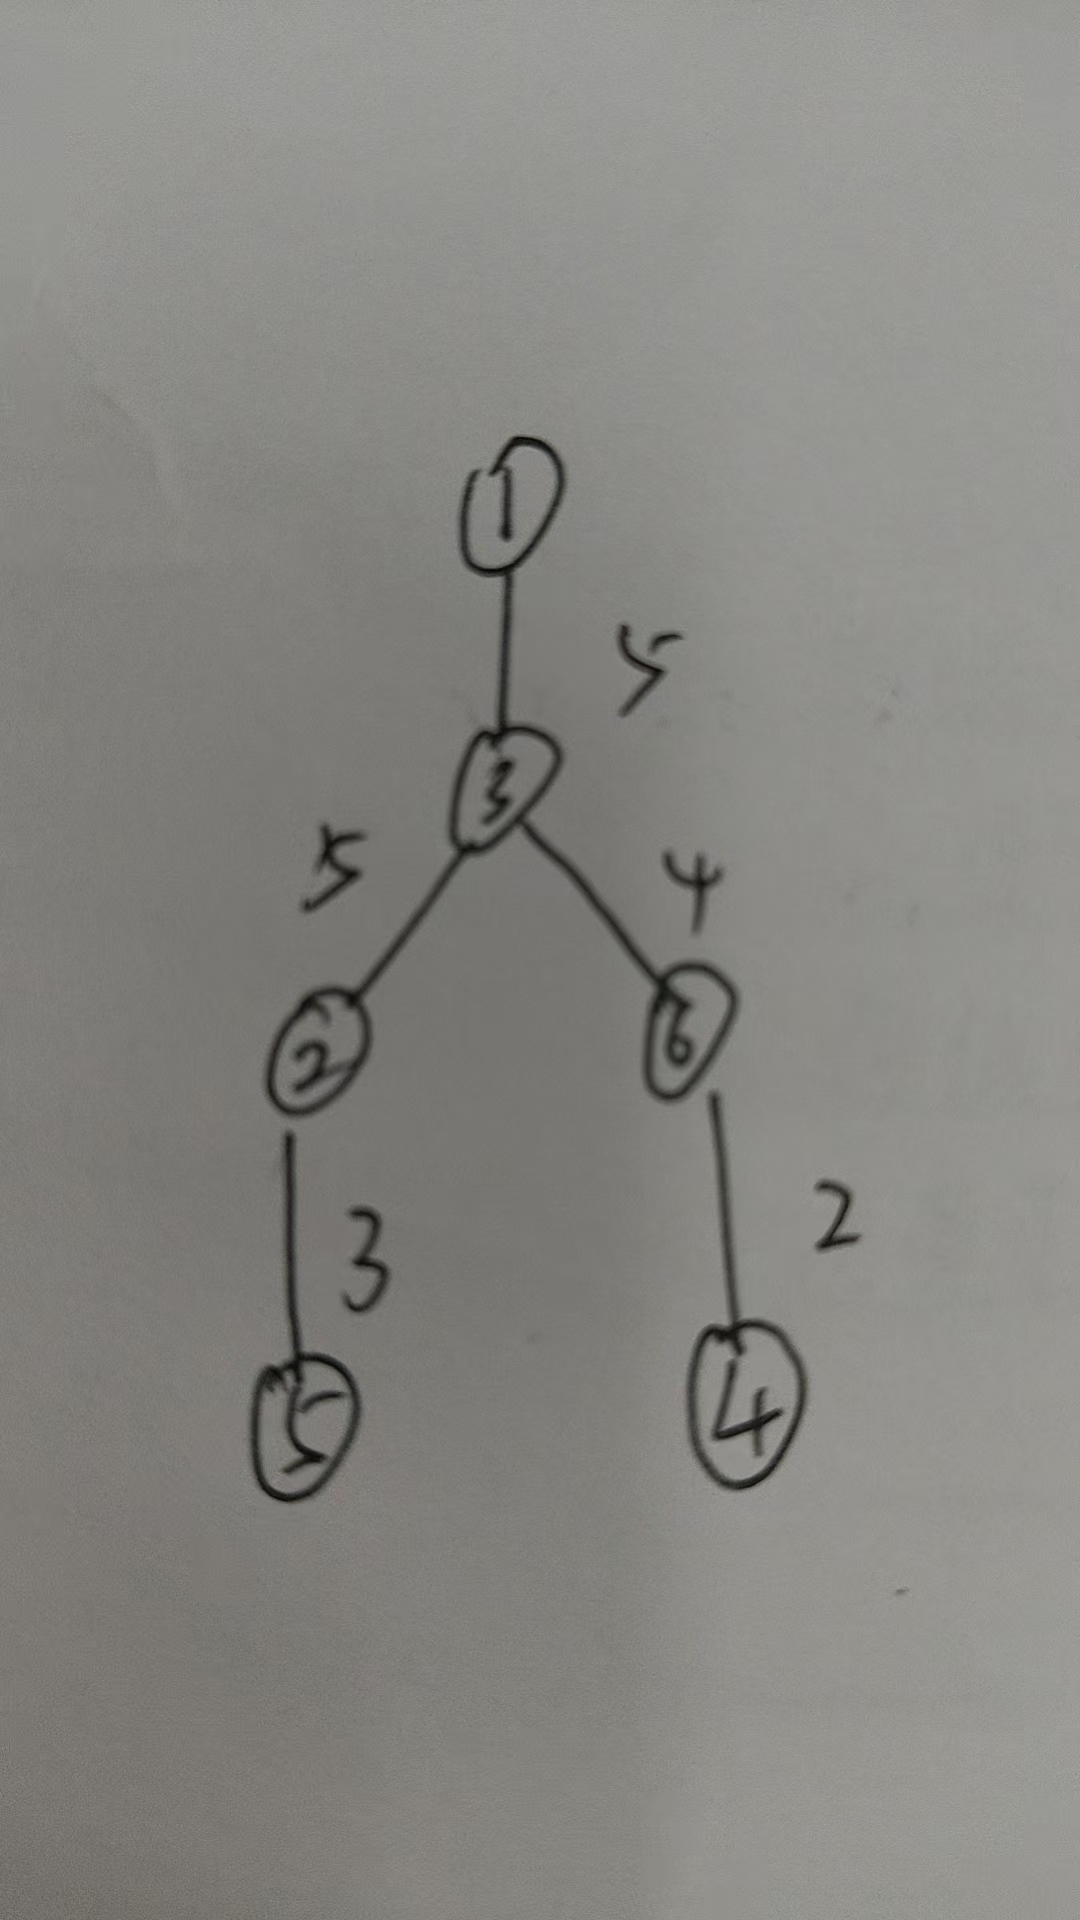 1
5
3
5 4
2 6
3 2
5 4